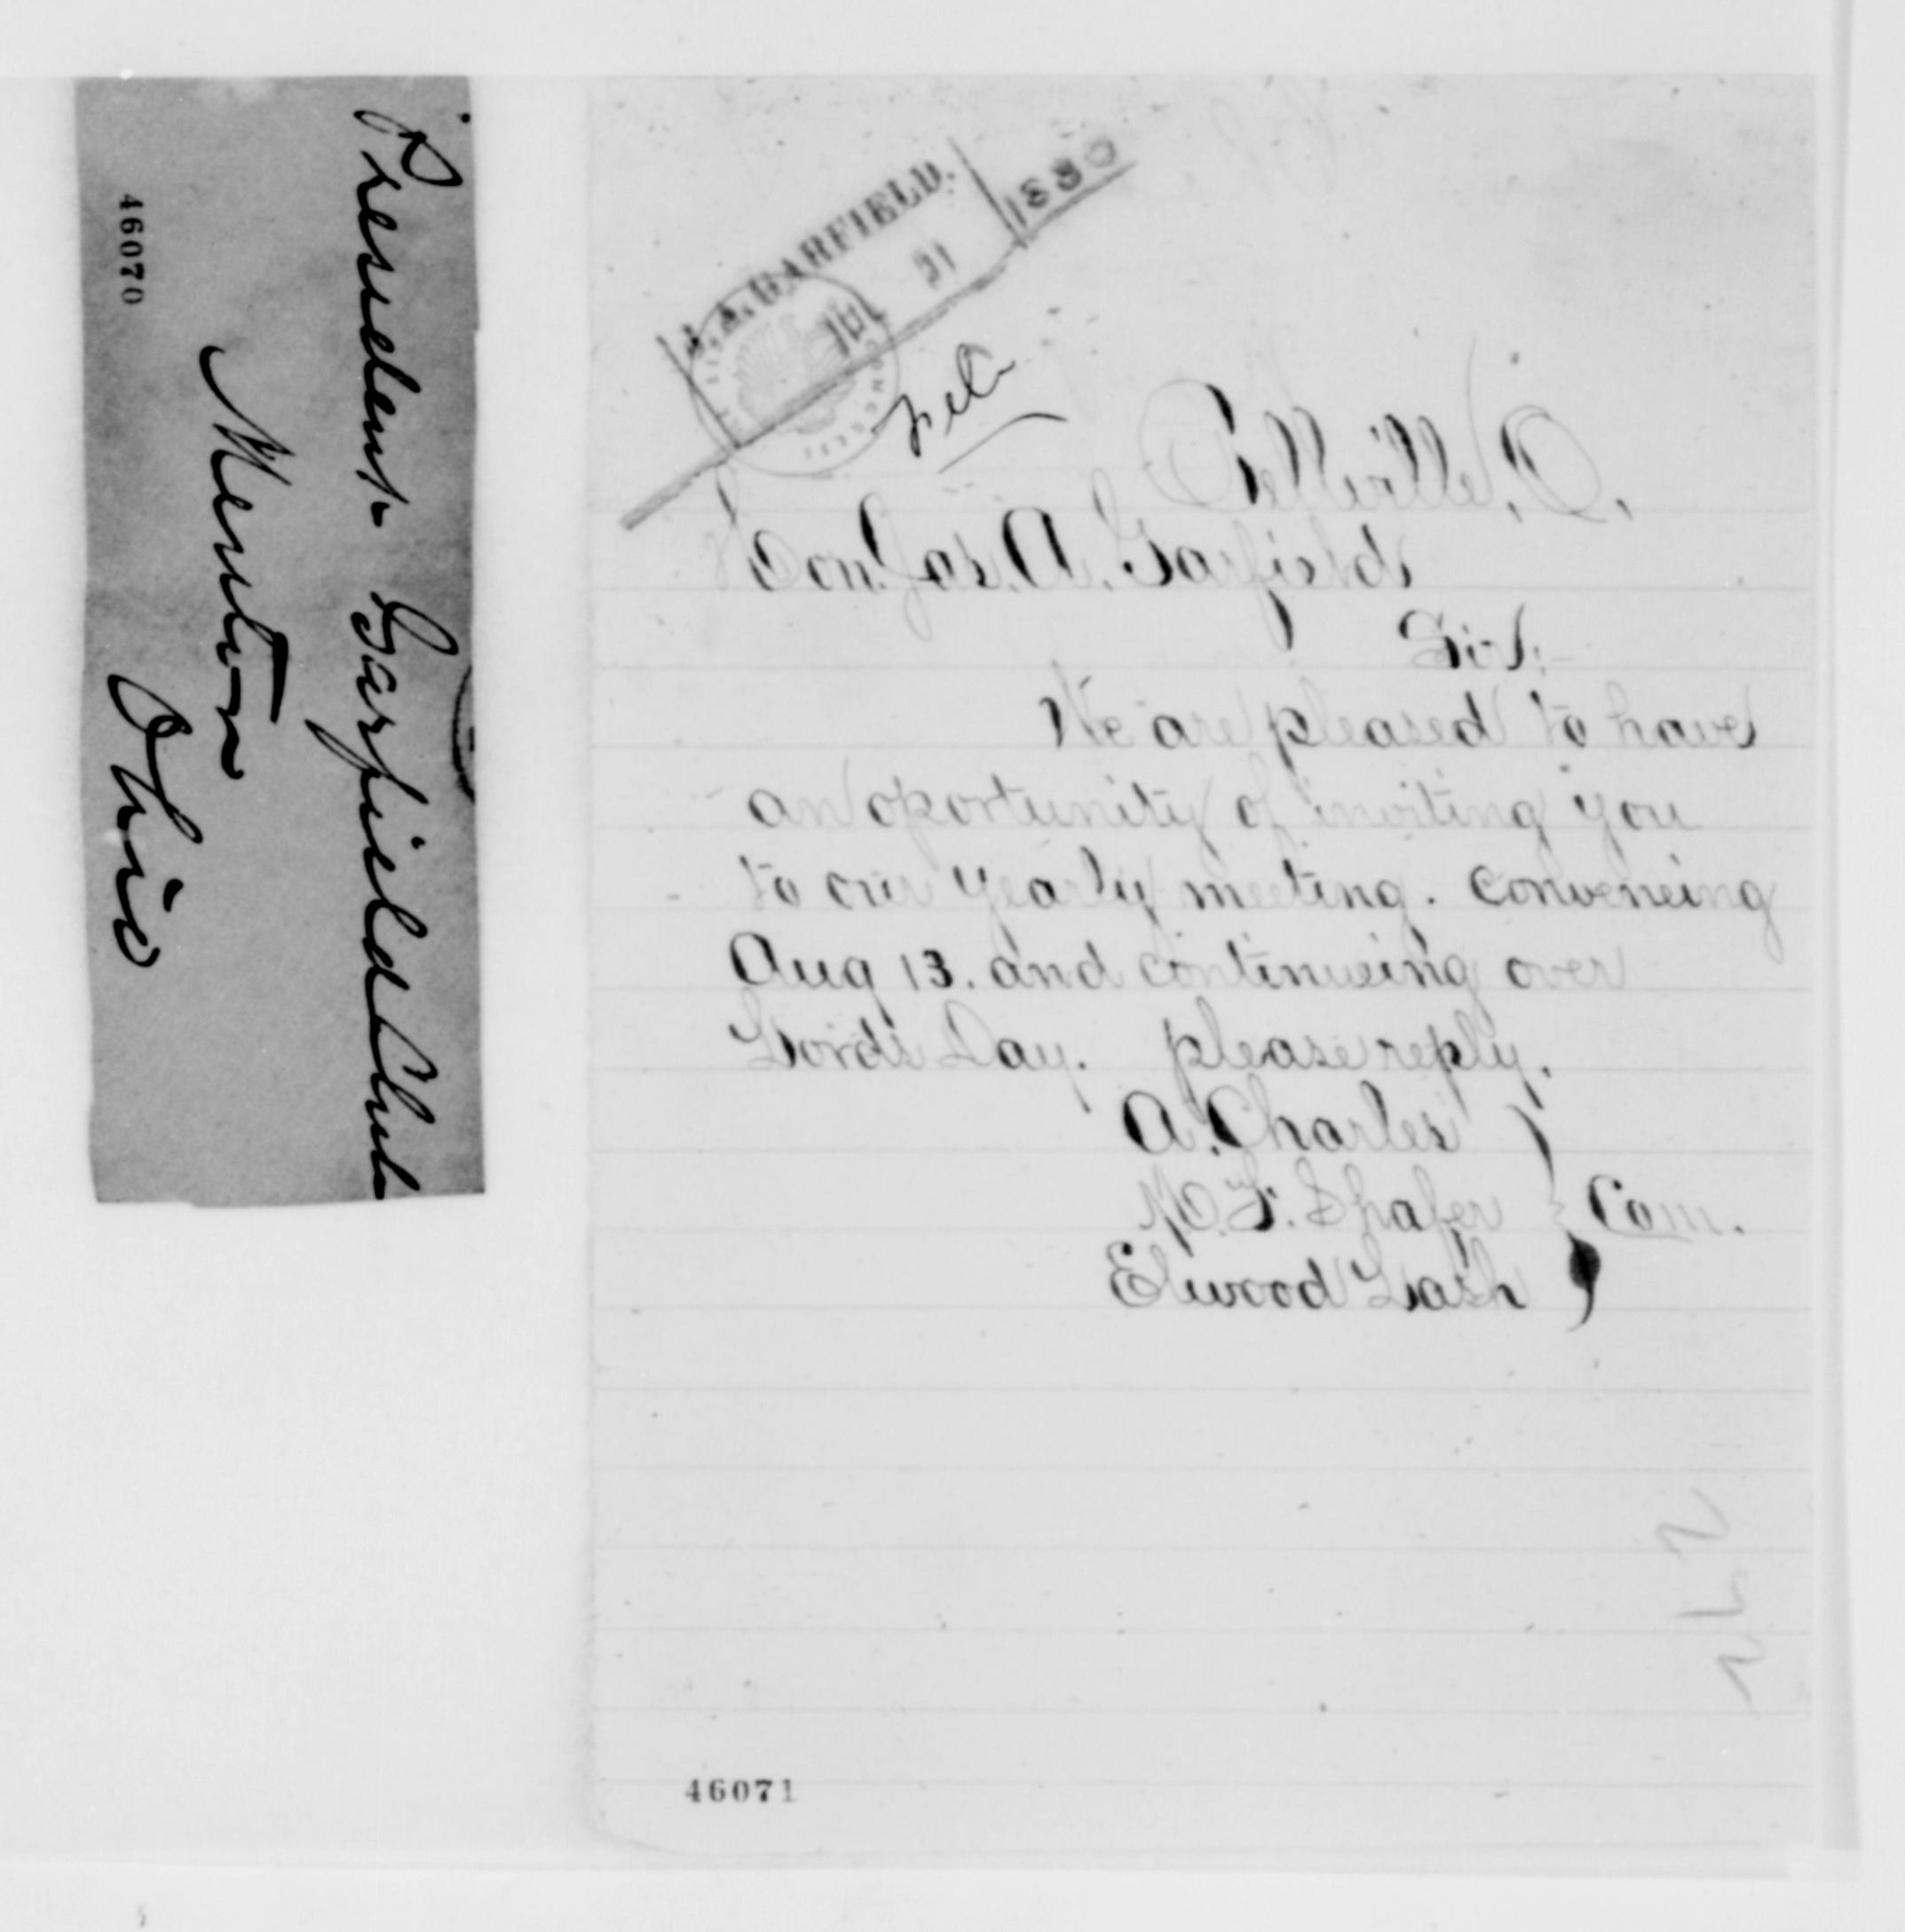 Pressedent Garfield Club
Mentor
Ohio
46070
J. A. GARFIELD.
JUL 21 1880
Belleville, O.
Hon. Jas. A. Garfield
Sir,
We are pleased to have
an oportunity of inviting you
to our yearly meeting. conveneing
Aug 13. and continueing over
Lord's Day. please reply.
A. Charles
M. F. Shafer } Com.
Elwood Lash
46071